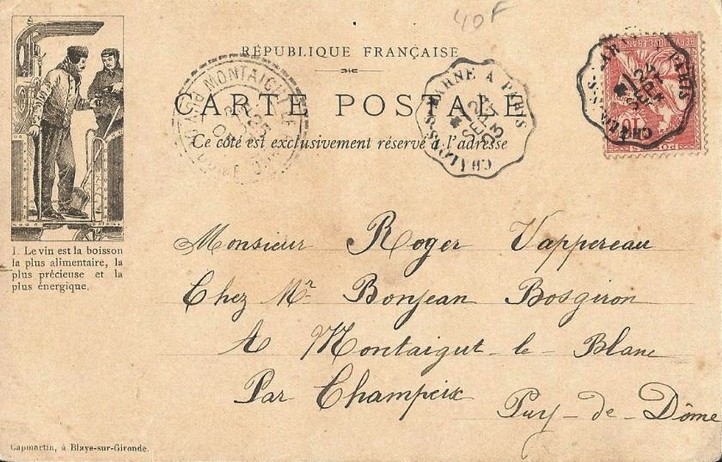 40F
RÉPUBLIQUE FRANÇAISE
CARTE POSTALE
Ce côté est exclusivement réservé à l'adresse
MARNE À PARIS
SEPT
03
CHALONS-S
24
SEPT
MONTAIGUT
25
10
1. Le vin est la boisson
la plus alimentaire, la
plus précieuse et la
plus énergique.
Monsieur Roger Vappereau
Chez Mr Bonjean Bosgiron
A Montaigut-le-Blanc
Par Champeix
Puy-de-Dôme
Capmartin, à Blaye-sur-Gironde.